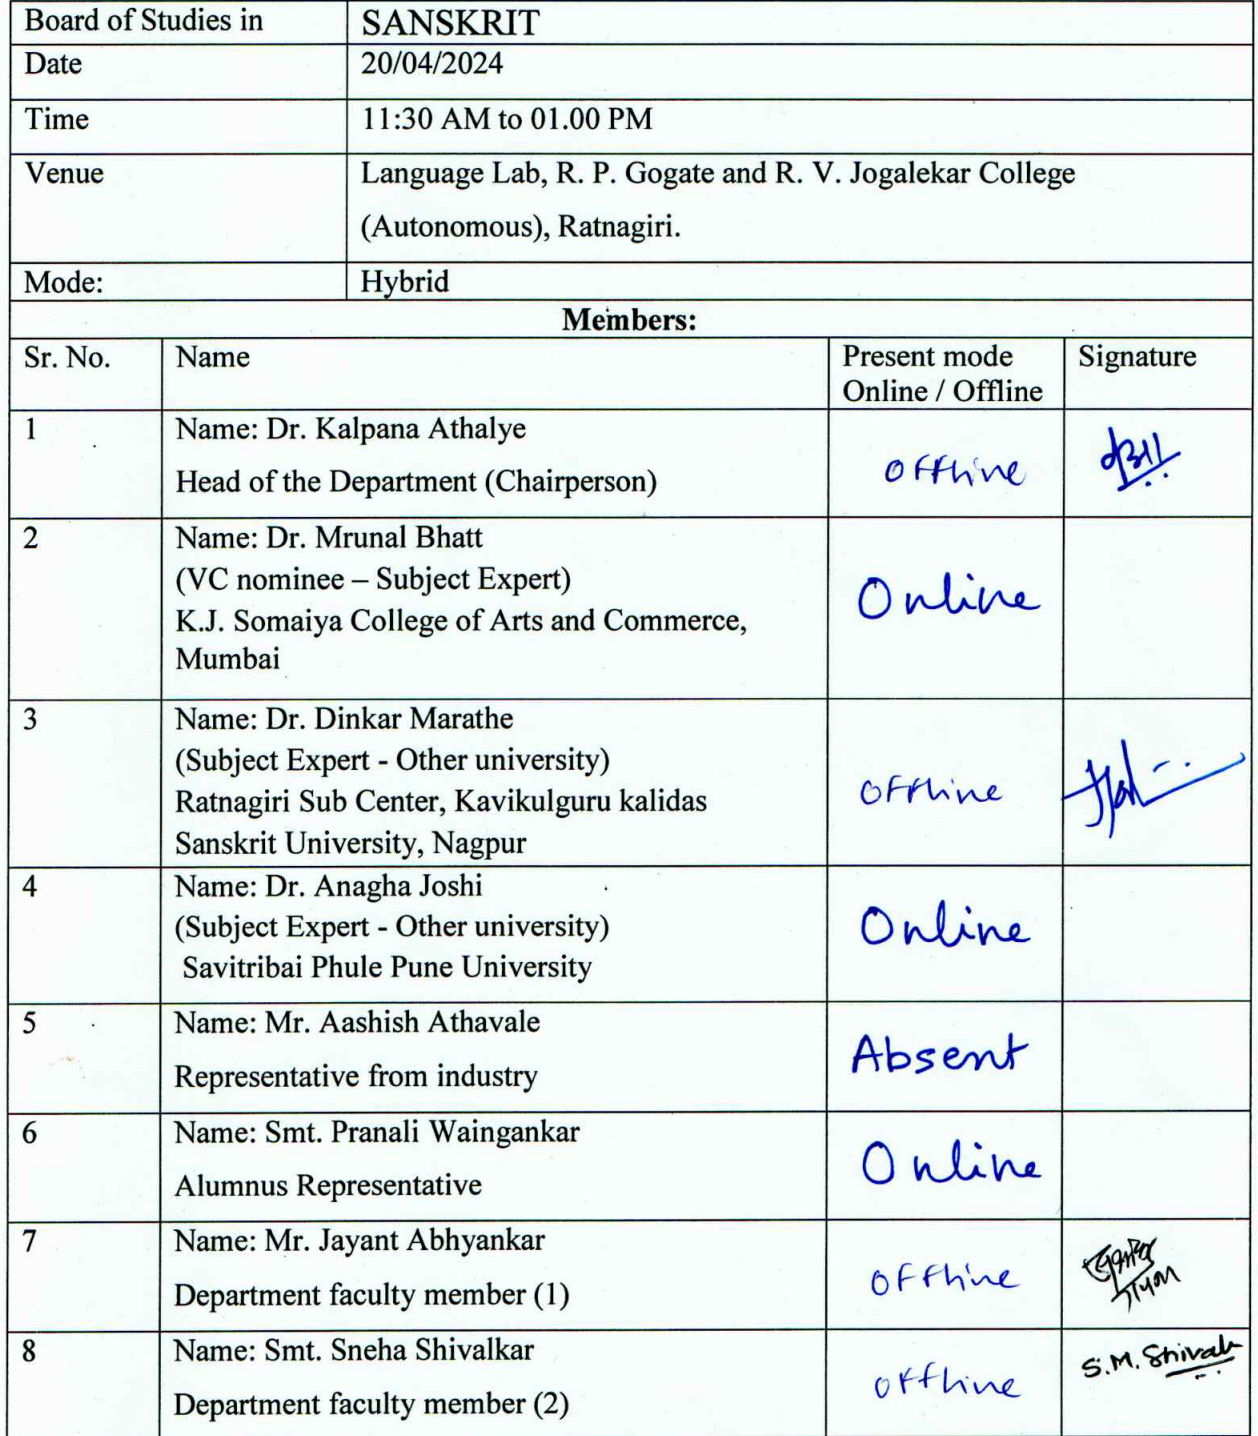 Board of Studies in SANSKRIT
Date 20/04/2024
Time 11:30 AM to 01.00 PM
Venue Language Lab, R. P. Gogate and R. V. Jogalekar College
(Autonomous), Ratnagiri.
Mode: Hybrid
Members:
Sr. No. Name Present mode Signature
Online / Offline
1 Name: Dr. Kalpana Athalye
Head of the Department (Chairperson) Offline
2 Name: Dr. Mrunal Bhatt
(VC nominee – Subject Expert) Online
K.J. Somaiya College of Arts and Commerce,
Mumbai
3 Name: Dr. Dinkar Marathe
(Subject Expert - Other university)
Ratnagiri Sub Center, Kavikulguru kalidas Offline
Sanskrit University, Nagpur
4 Name: Dr. Anagha Joshi
(Subject Expert - Other university) Online
Savitribai Phule Pune University
5 Name: Mr. Aashish Athavale
Representative from industry Absent
6 Name: Smt. Pranali Waingankar
Alumnus Representative Online
7 Name: Mr. Jayant Abhyankar
Department faculty member (1) Offline
8 Name: Smt. Sneha Shivalkar S.M. Shivalk
Department faculty member (2) Offline